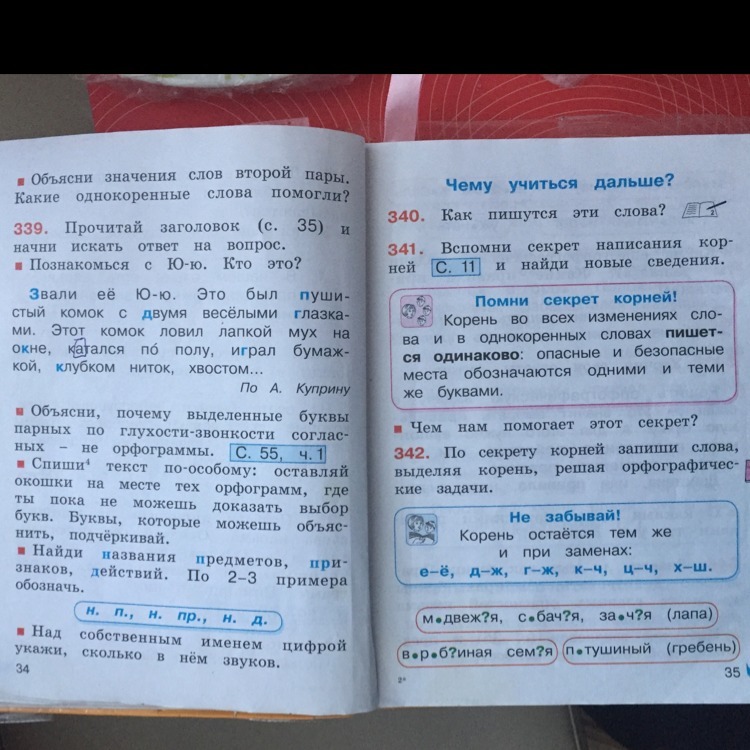 ▪ Объясни значения слов второй пары.
Какие однокоренные слова помогли?
339. Прочитай заголовок (с. 35) и
начни искать ответ на вопрос.
▪ Познакомься с Ю-ю. Кто это?
Звали её Ю-ю. Это был пуши-
стый комок с двумя весёлыми глазка-
ми. Этот комок ловил лапкой мух на
окне, катался по́ полу, играл бумаж-
кой, клубком ниток, хвостом...
По А. Куприну
▪ Объясни, почему выделенные буквы
парных по глухости-звонкости соглас-
ных – не орфограммы. С. 55, ч. 1
▪ Спиши⁴ текст по-особому: оставляй
окошки на месте тех орфограмм, где
ты пока не можешь доказать выбор
букв. Буквы, которые можешь объяс-
нить, подчёркивай.
▪ Найди названия предметов, при-
знаков, действий. По 2–3 примера
обозначь.
н. п., н. пр., н. д.
▪ Над собственным именем цифрой
укажи, сколько в нём звуков.
34
Чему учиться дальше?
340. Как пишутся эти слова?
341. Вспомни секрет написания кор-
ней С. 11 и найди новые сведения.
Помни секрет корней!
Корень во всех изменениях сло-
ва и в однокоренных словах пишет-
ся одинаково: опасные и безопасные
места обозначаются одними и теми
же буквами.
▪ Чем нам помогает этот секрет?
342. По секрету корней запиши слова,
выделяя корень, решая орфографичес-
кие задачи.
Не забывай!
Корень остаётся тем же
и при заменах:
е–ё, д–ж, г–ж, к–ч, ц–ч, х–ш.
м●двеж?я, с●бач?я, за●ч?я (лапа)
в●р●б?иная сем?я п●тушиный (гребень)
2* 35